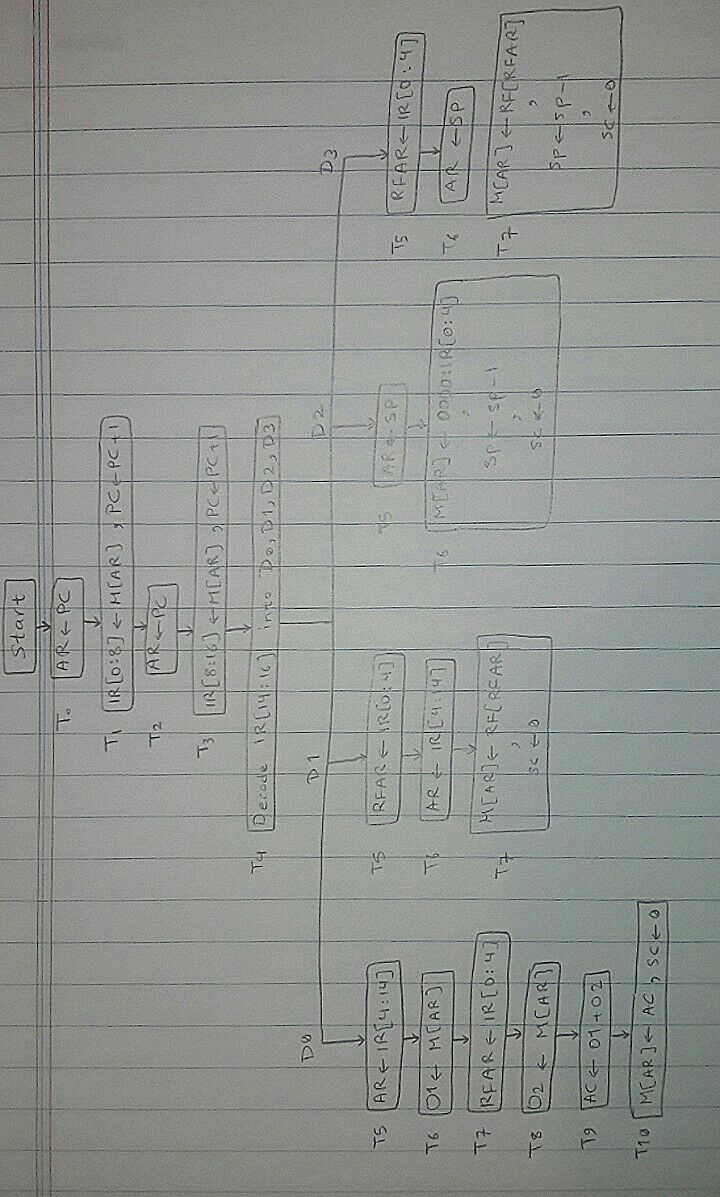 Start
T0 AR ← PC
T1 IR[0:8] ← M[AR] , PC ← PC+1
T2 AR ← PC
T3 IR[8:16] ← M[AR] , PC ← PC+1
T4 Decode IR[14:16] into D0, D1, D2, D3
D0
T5 AR ← IR[4:14]
T6 O1 ← M[AR]
T7 RFAR ← IR[0:4]
T8 O2 ← M[AR]
T9 AC ← O1+O2
T10 M[AR] ← AC , SC ← 0
D1
T5 RFAR ← IR[0:4]
T6 AR ← IR[4:14]
T7 M[AR] ← RF[RFAR]
,
SC ← 0
D2
T5 AR ← SP
T6 M[AR] ← 0000:IR[0:4]
,
SP ← SP-1
,
SC ← 0
D3
T5 RFAR ← IR[0:4]
T6 AR ← SP
T7 M[AR] ← RF[RFAR]
,
SP ← SP-1
,
SC ← 0